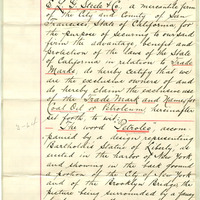 E. L. G. Steele & Co. a mercantile firm
of the City and County of San
Francisco, State of California, for
the purpose of securing to ourselves
fully the advantage, benefit and
protection of the laws of the State
of California in relation to Trade
Marks, do hereby certify that we
are the exclusive owners of and
do hereby claim the exclusive use
of the Trade Mark and Name for
Coal Oil or Petroleum, hereinafter
set forth, to wit:
The word Petrolio, accom-
panied by a design representing
Bartholdi's Statue of Liberty, as
erected in the harbor of New York
and showing in the back ground
a portion of the City of New York
and of the Brooklyn Bridge, the
picture being surrounded by a